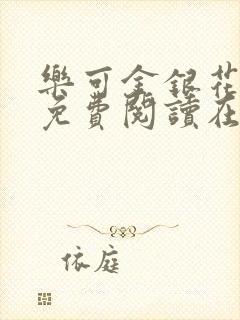 樂可金銀花
免費閱讀在
依庭